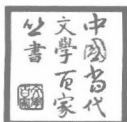 中國當代
文學百家
丛書